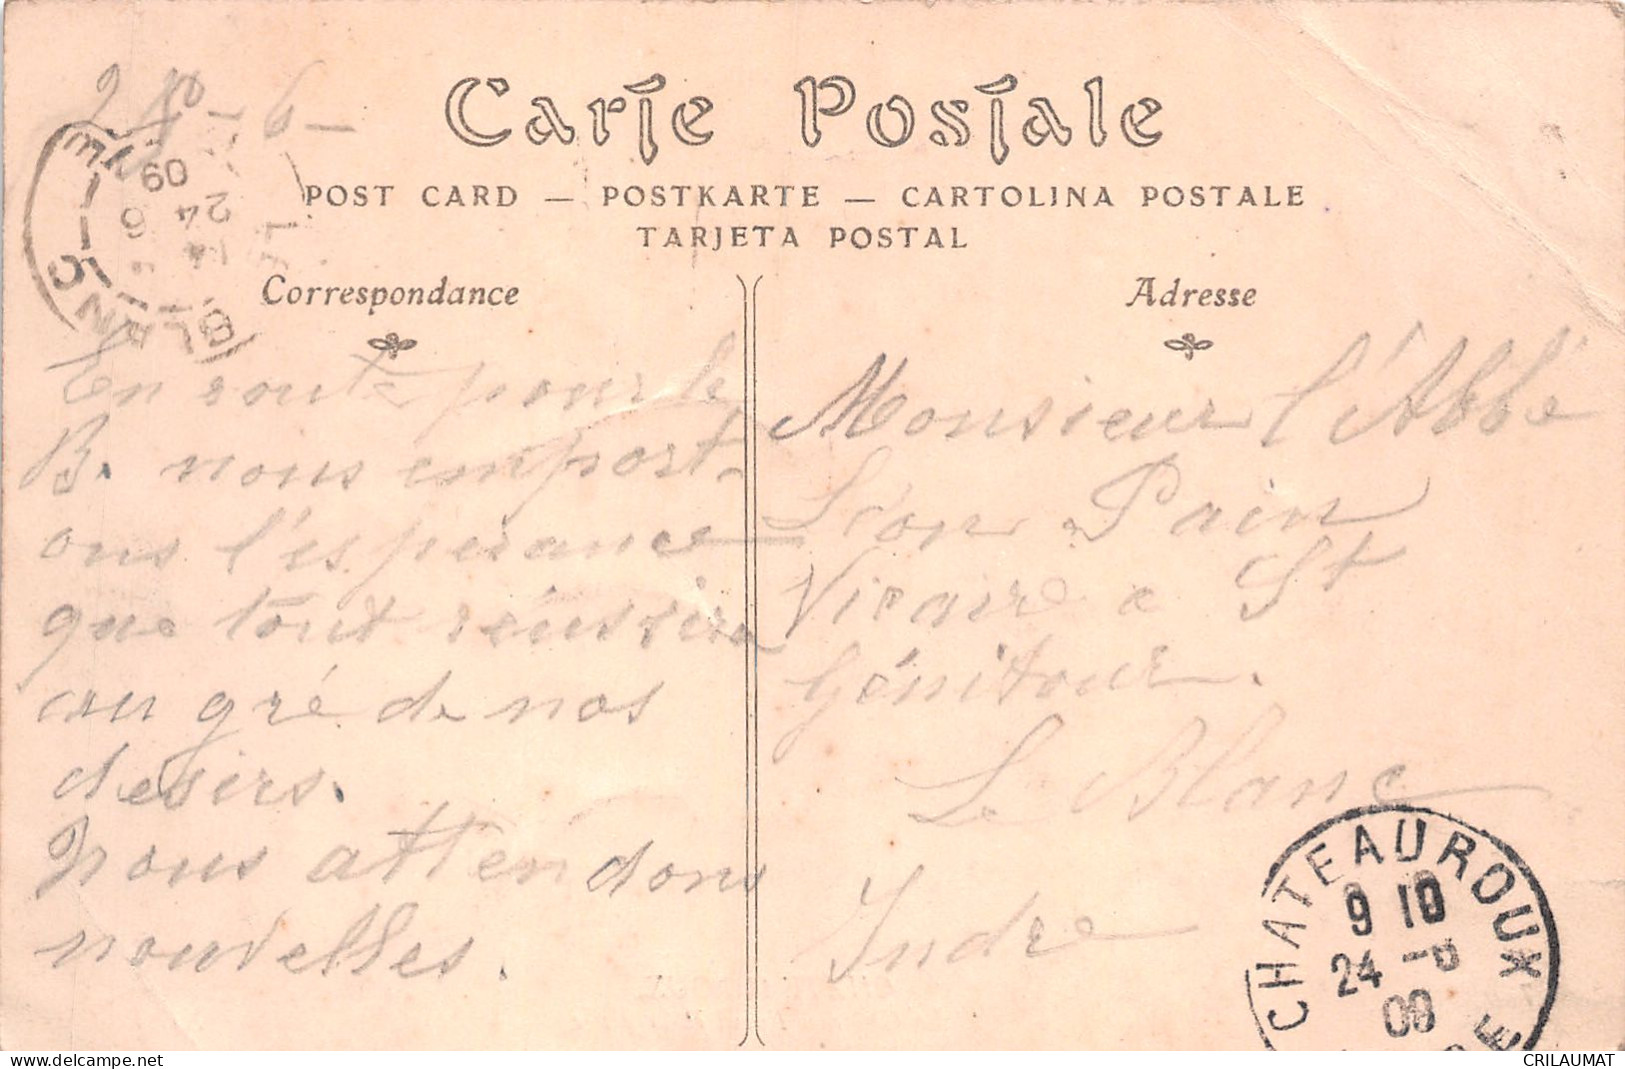 Carte Postale
POST CARD — POSTKARTE — CARTOLINA POSTALE
TARJETA POSTAL
Correspondance
Adresse
LE BLANC
INDRE
24 6
09
En route pour le
B. nous emport-
ons l'espérance
que tout réussira
au gré de nos
desirs.
Nous attendons
nouvelles.
Monsieur l'Abbé
Léon Pain
Vicaire a St
Génitour.
Le Blanc
Indre
CHATEAUROUX
9 10
24 -6
09
delcampe.net
CRILAUMAT